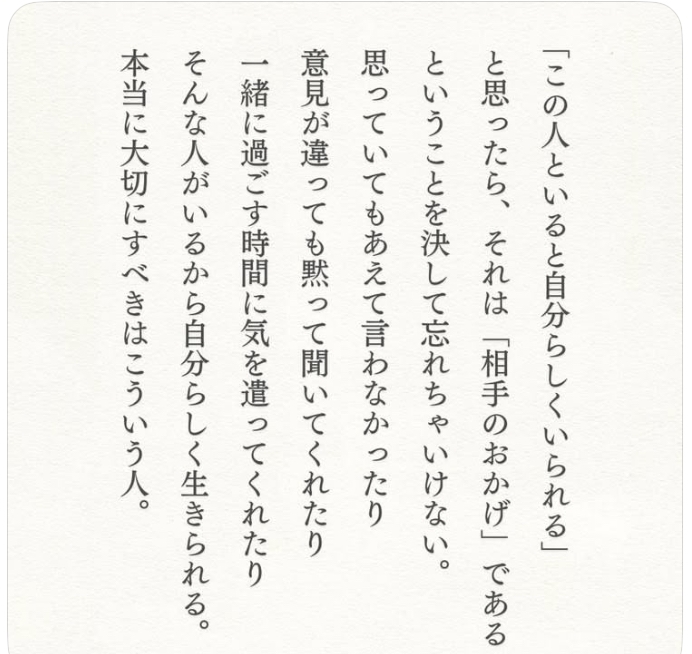 「この人といると自分らしくいられる」
と思ったら、それは「相手のおかげ」である
ということを決して忘れちゃいけない。
思っていてもあえて言わなかったり
意見が違っても黙って聞いてくれたり
一緒に過ごす時間に気を遣ってくれたり
そんな人がいるから自分らしく生きられる。
本当に大切にすべきはこういう人。